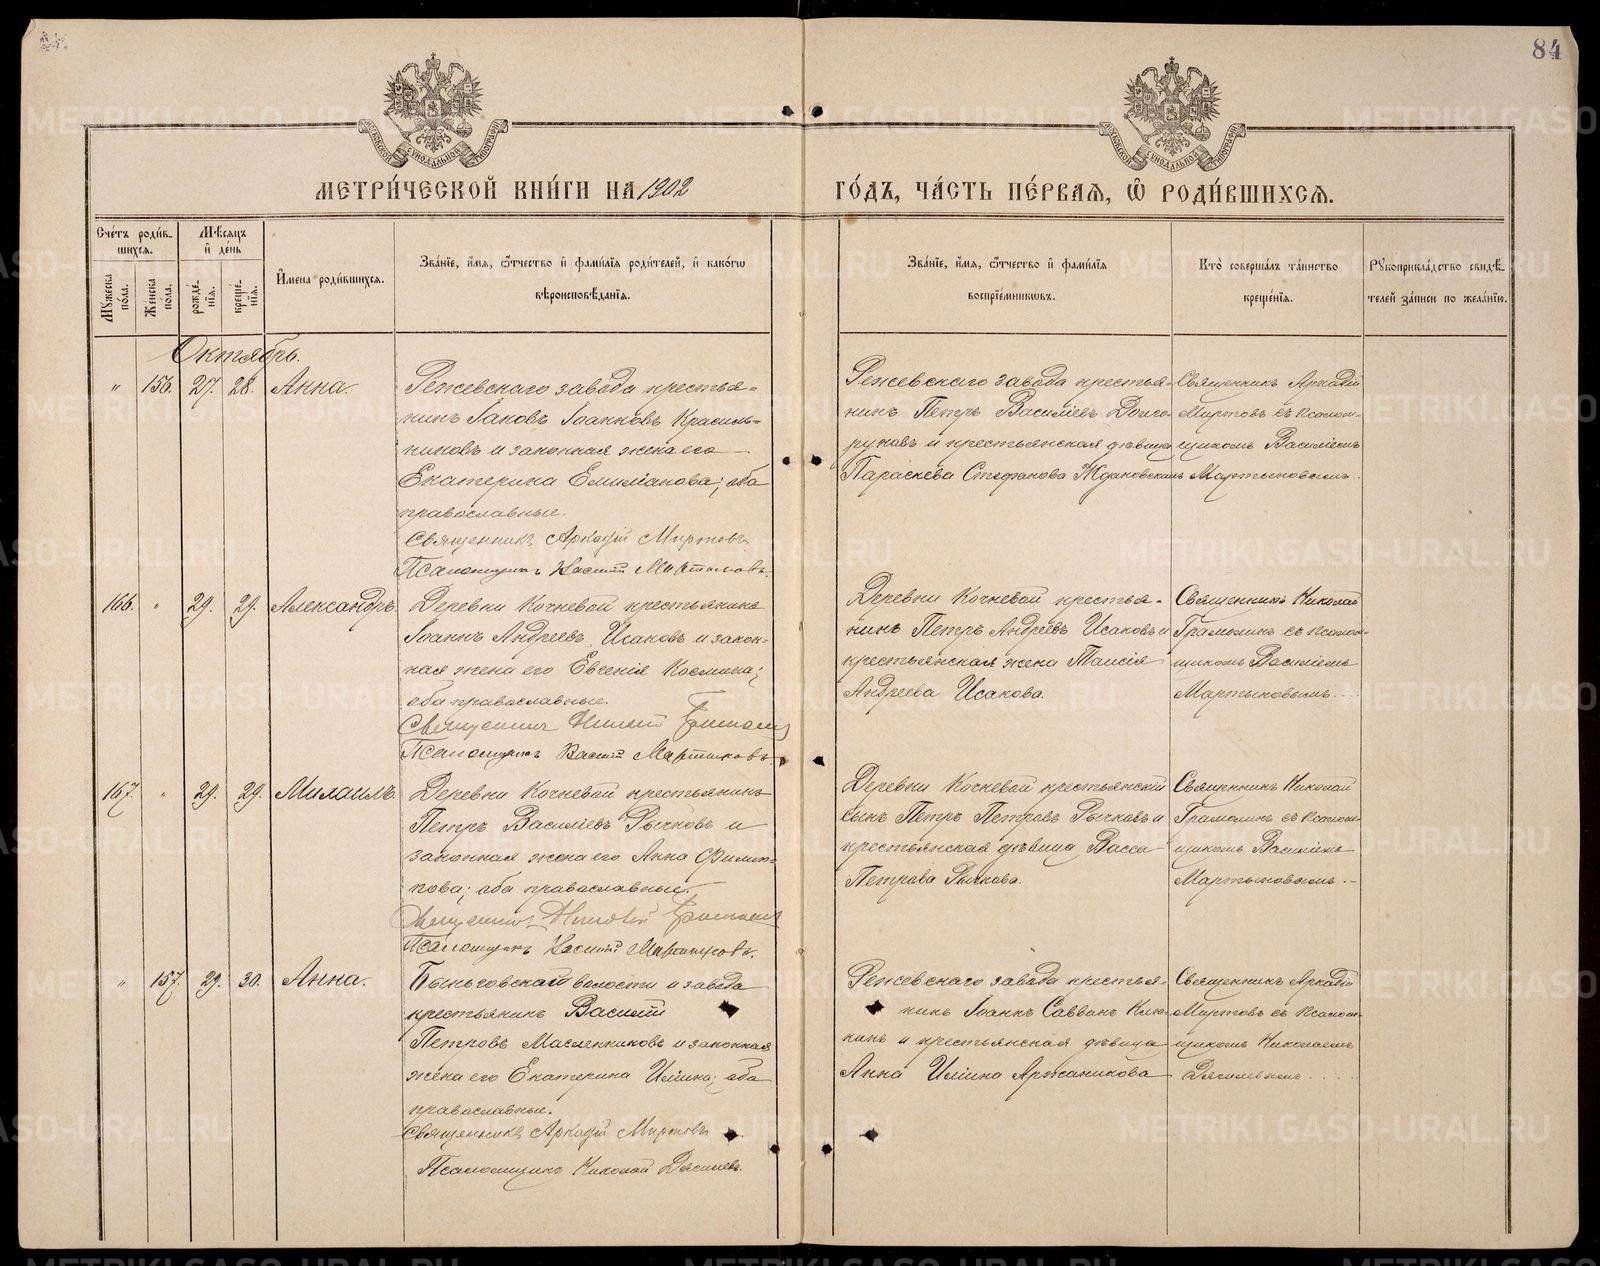 84
МОСКОВСКОЙ СѴНОДАЛЬНОЙ ТИПОГРАФІИ
МОСКОВСКОЙ СѴНОДАЛЬНОЙ ТИПОГРАФІИ
МЕТРИ́ЧЕСКОЙ КНИ́ГИ НА 1902
ГО́ДЪ, ЧА́СТЬ ПЕ́РВАѦ, Ѡ РОДИ́ВШИХСѦ.
Сче́тъ роди́в-
шихсѧ.
Мѣ́сѧцъ
и҆ де́нь
Мꙋ́жеска
по́ла.
Же́нска
по́ла.
рожде́-
нїѧ.
креще́-
нїѧ.
И҆мена роди́вшихсѧ.
Зва́нїе, и҆́мѧ, ѻ҆́тчество и҆ фами́лїѧ роди́телей, и҆ како́гѡ
вѣроисповѣ́данїѧ.
Зва́нїе, и҆́мѧ, ѻ҆́тчество и҆ фами́лїѧ
воспрїе́мникѡвъ.
Кто̀ соверша́лъ та́инство
креще́нїѧ.
Рꙋкоприкла́дство свидѣ́-
телей за́писи по жела́нїю.
Октябрь.
" 156. 27. 28. Анна.
Режевскаго завода крестья=
нинъ Іаковъ Іоанновъ Красиль=
никовъ и законная жена его
Екатерина Емиліанова; оба
православные.
Священникъ Аркадій Миртовъ.
Псаломщикъ Василій Мартыновъ.
Режевскаго завода крестья-
нинъ Петръ Василіевъ Долго-
руковъ и крестьянская дѣвица
Параскева Стефанова Ждановскихъ
Священникъ Аркадій
Миртовъ съ псалом-
щикомъ Василіемъ
Мартыновымъ.
166. " 29. 29. Александръ.
Деревни Кочневой крестьянинъ
Іоаннъ Андреевъ Исаковъ и закон-
ная жена его Евгенія Космина;
оба православные.
Священникъ Николай Грамолинъ
Псаломщикъ Василій Мартыновъ.
Деревни Кочневой крестья-
нинъ Петръ Андреевъ Исаковъ и
крестьянская жена Таисія
Андреева Исакова.
Священникъ Николай
Грамолинъ съ псалом-
щикомъ Василіемъ
Мартыновымъ.
167. " 29. 29. Михаилъ.
Деревни Кочневой крестьянинъ
Петръ Василіевъ Рычковъ и
законная жена его Анна Филип-
пова; оба православные.
Священникъ Николай Грамолинъ
Псаломщикъ Василій Мартыновъ.
Деревни Кочневой крестьянскій
сынъ Петръ Петровъ Рычковъ и
крестьянская дѣвица Васса
Петрова Рычкова.
Священникъ Николай
Грамолинъ съ псалом-
щикомъ Василіемъ
Мартыновымъ.
" 157. 29. 30. Анна.
Быньговской волости и завода
крестьянинъ Василій
Петровъ Масленниковъ и законная
жена его Екатерина Иліина; оба
православные.
Священникъ Аркадій Миртовъ
Псаломщикъ Николай
Режевскаго завода крестья-
нинъ Іоаннъ Саввинъ
и крестьянская дѣвица
Анна Иліина Аржанникова
Священникъ Аркадій
Миртовъ съ псалом-
щикомъ Николаемъ
METRIKI.GASO-URAL.RU